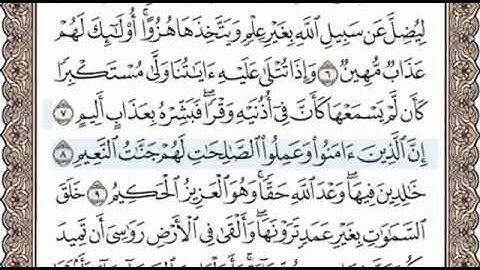 لِيُضِلَّ عَن سَبِيلِ ٱللَّهِ بِغَيۡرِ عِلۡمٖ وَيَتَّخِذَهَا هُزُوًاۚ أُوْلَٰٓئِكَ لَهُمۡ
عَذَابٞ مُّهِينٞ ٦ وَإِذَا تُتۡلَىٰ عَلَيۡهِ ءَايَٰتُنَا وَلَّىٰ مُسۡتَكۡبِرٗا
كَأَن لَّمۡ يَسۡمَعۡهَا كَأَنَّ فِيٓ أُذُنَيۡهِ وَقۡرٗاۖ فَبَشِّرۡهُ بِعَذَابٍ أَلِيمٍ ٧
إِنَّ ٱلَّذِينَ ءَامَنُواْ وَعَمِلُواْ ٱلصَّٰلِحَٰتِ لَهُمۡ جَنَّٰتُ ٱلنَّعِيمِ ٨
خَٰلِدِينَ فِيهَاۖ وَعۡدَ ٱللَّهِ حَقّٗاۚ وَهُوَ ٱلۡعَزِيزُ ٱلۡحَكِيمُ ٩ خَلَقَ
ٱلسَّمَٰوَٰتِ بِغَيۡرِ عَمَدٖ تَرَوۡنَهَاۖ وَأَلۡقَىٰ فِي ٱلۡأَرۡضِ رَوَٰسِيَ أَن تَمِيدَ